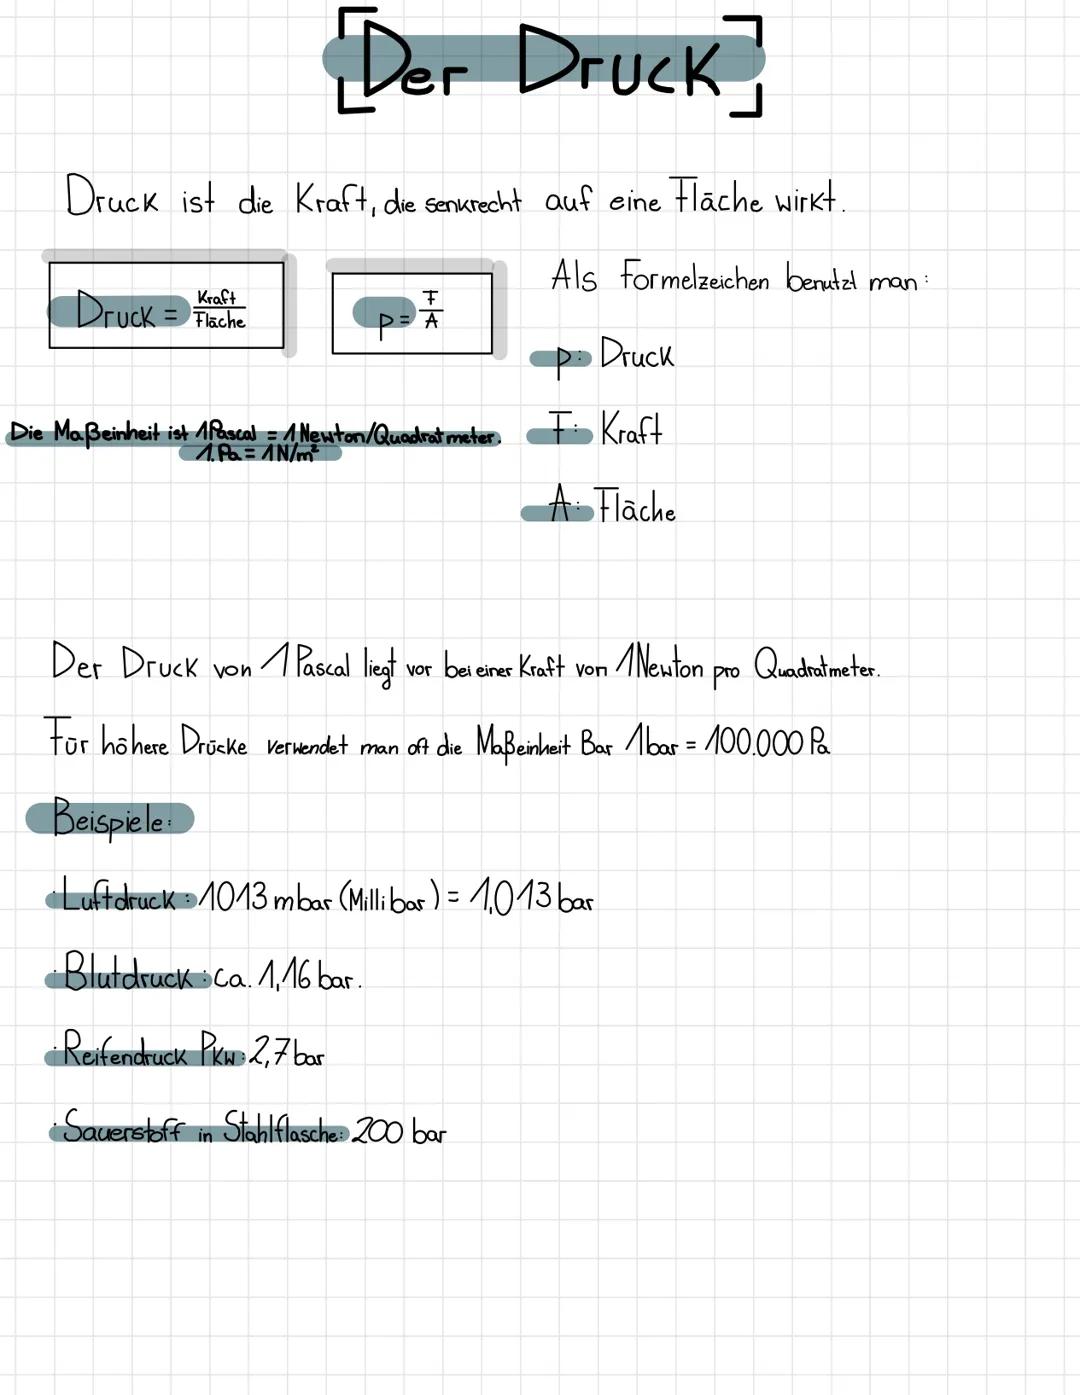 Der Druck
Druck ist die Kraft, die senkrecht auf eine Fläche wirkt.
Druck = Kraft/Fläche
p = F/A
Als Formelzeichen benutzt man:
p: Druck
F: Kraft
A: Fläche
Die Maßeinheit ist 1 Pascal = 1 Newton/Quadratmeter.
1. Pa = 1 N/m²
Der Druck von 1 Pascal liegt vor bei einer Kraft von 1 Newton pro Quadratmeter.
Für höhere Drücke verwendet man oft die Maßeinheit Bar 1 bar = 100.000 Pa
Beispiele:
·Luftdruck: 1013 mbar (Millibar) = 1,013 bar
·Blutdruck: ca. 1,16 bar.
·Reifendruck Pkw: 2,7 bar
·Sauerstoff in Stahlflasche: 200 bar